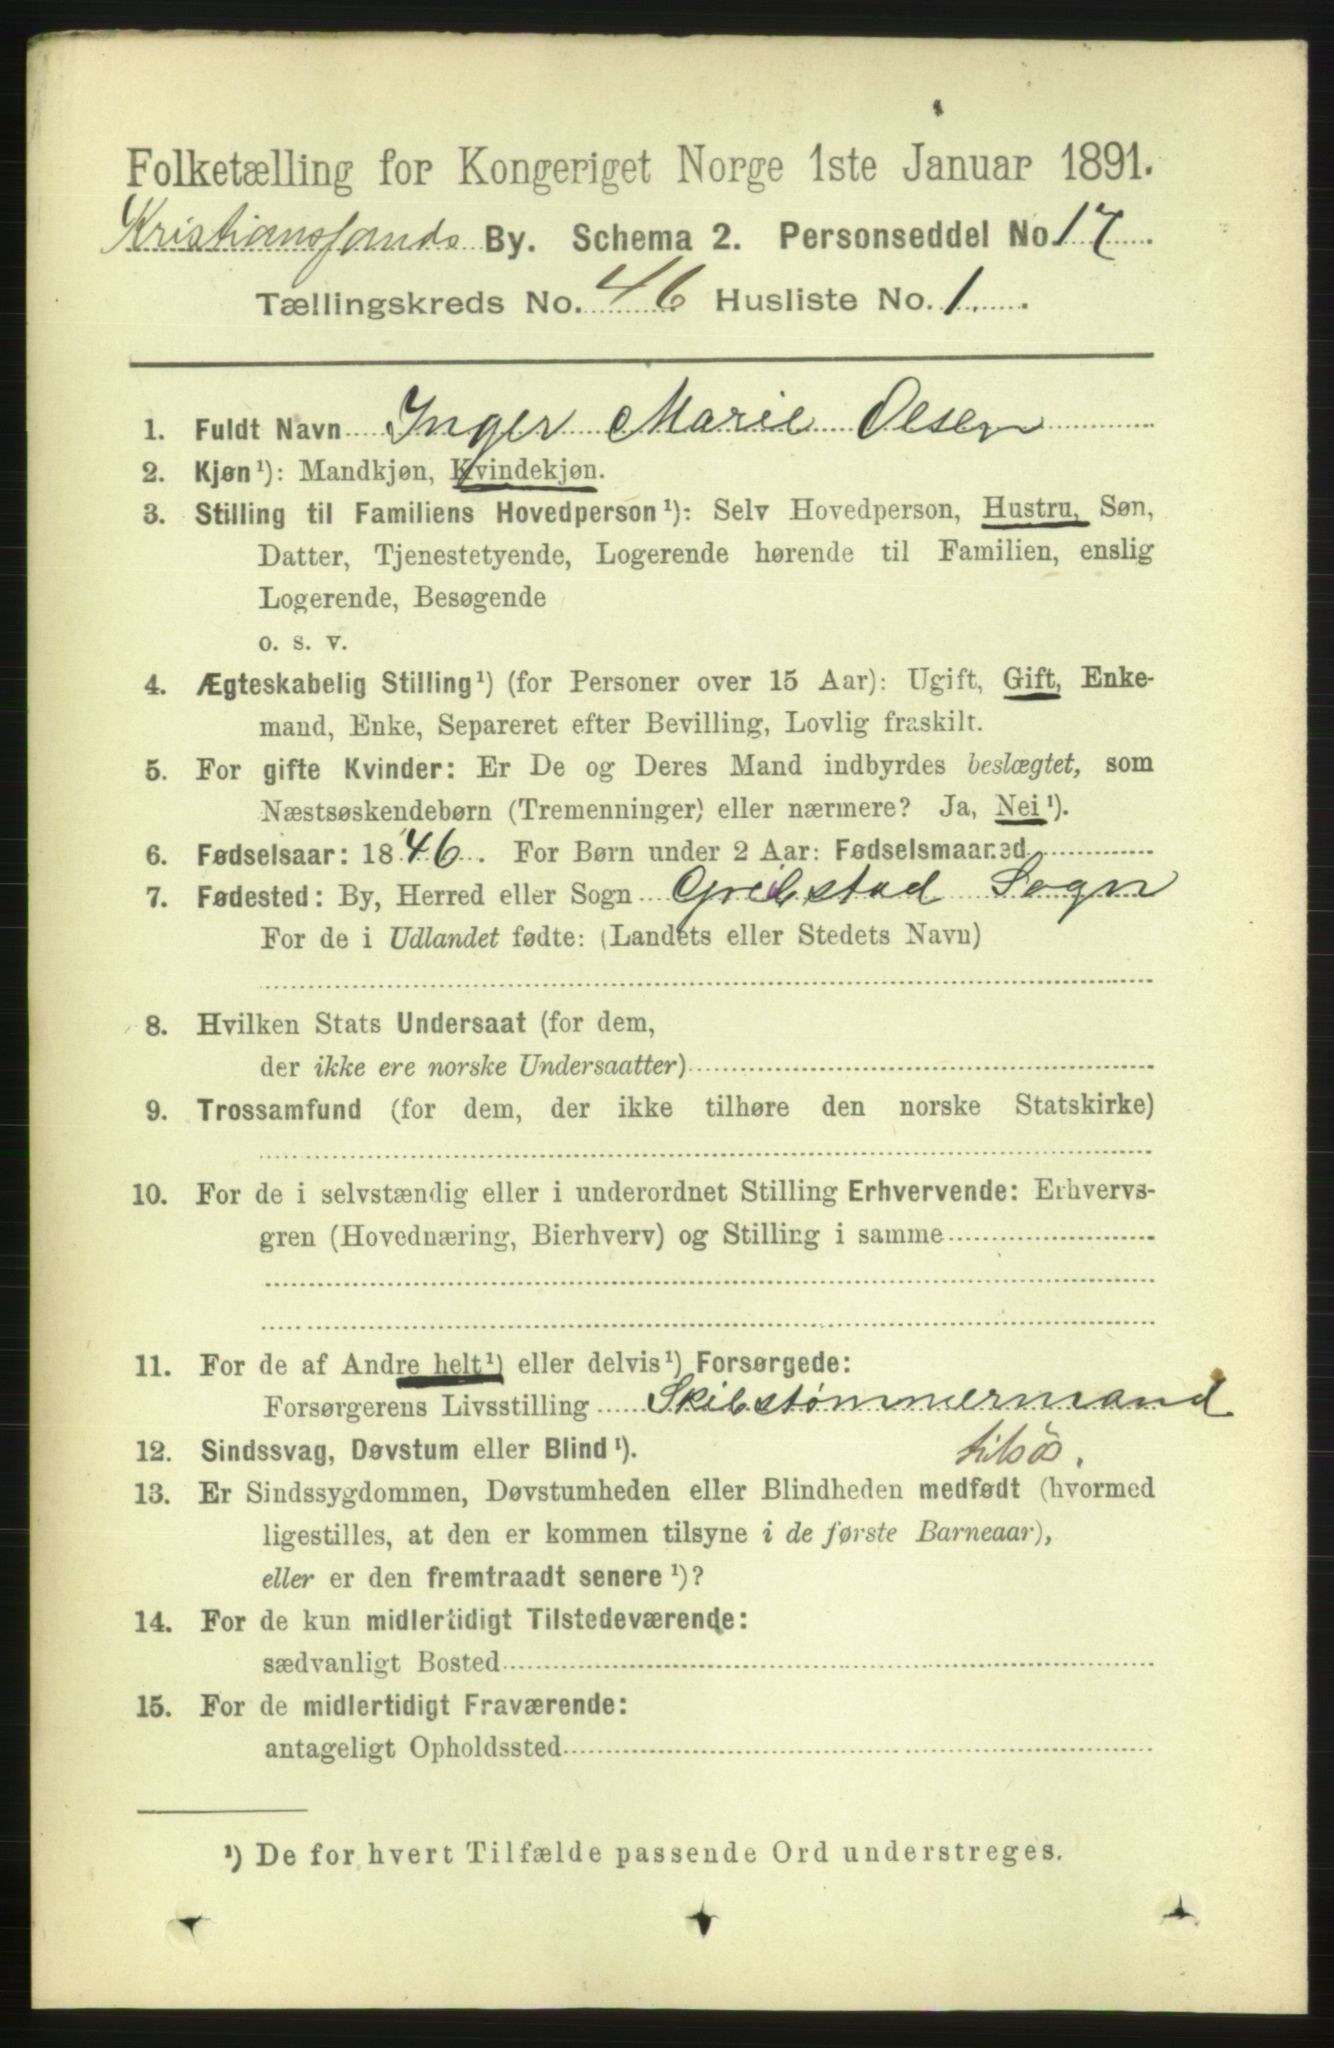 Folketælling for Kongeriget Norge 1ste Januar 1891.
Kristianssands By. Schema 2. Personseddel No. 17
Tællingskreds No. 46 Husliste No. 1
1. Fuldt Navn Inger Marie Olsen
2. Kjøn¹): Mandkjøn, Kvindekjøn.
3. Stilling til Familiens Hovedperson¹): Selv Hovedperson, Hustru, Søn,
Datter, Tjenestetyende, Logerende hørende til Familien, enslig
Logerende, Besøgende
o. s. v.
4. Ægteskabelig Stilling¹) (for Personer over 15 Aar): Ugift, Gift, Enke-
mand, Enke, Separeret efter Bevilling, Lovlig fraskilt.
5. For gifte Kvinder: Er De og Deres Mand indbyrdes beslægtet, som
Næstsøskendebørn (Tremenninger) eller nærmere? Ja, Nei¹).
6. Fødselsaar: 1846. For Børn under 2 Aar: Fødselsmaaned
7. Fødested: By, Herred eller Sogn Greibstad Sogn
For de i Udlandet fødte: (Landets eller Stedets Navn)
8. Hvilken Stats Undersaat (for dem,
der ikke ere norske Undersaatter)
9. Trossamfund (for dem, der ikke tilhøre den norske Statskirke)
10. For de i selvstændig eller i underordnet Stilling Erhvervende: Erhvervs-
gren (Hovednæring, Bierhverv) og Stilling i samme
11. For de af Andre helt¹) eller delvis¹) Forsørgede:
Forsørgerens Livsstilling Skibstømmermand
tilsøs.
12. Sindssvag, Døvstum eller Blind¹).
13. Er Sindssygdommen, Døvstumheden eller Blindheden medfødt (hvormed
ligestilles, at den er kommen tilsyne i de første Barneaar),
eller er den fremtraadt senere¹)?
14. For de kun midlertidigt Tilstedeværende:
sædvanligt Bosted
15. For de midlertidigt Fraværende:
antageligt Opholdssted
¹) De for hvert Tilfælde passende Ord understreges.